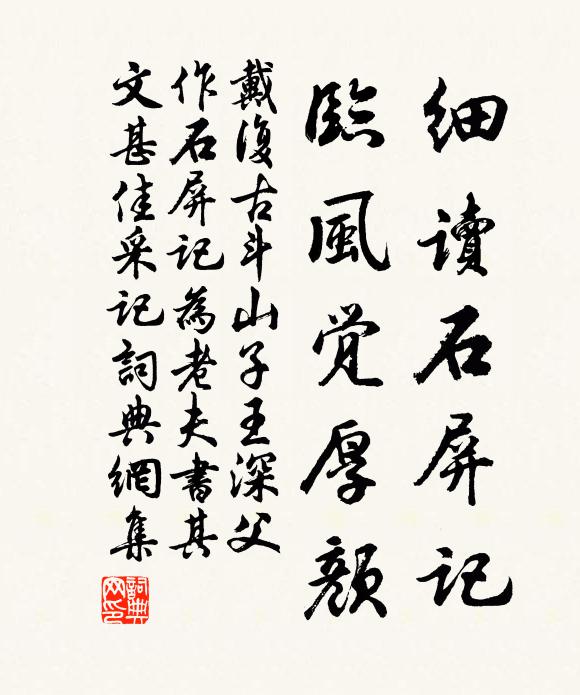 细讀石屏记
臨風覺厚顔
戴復古斗山子王深父
作石屏记為老夫書其
文甚佳采记詞典網集
詞典网印